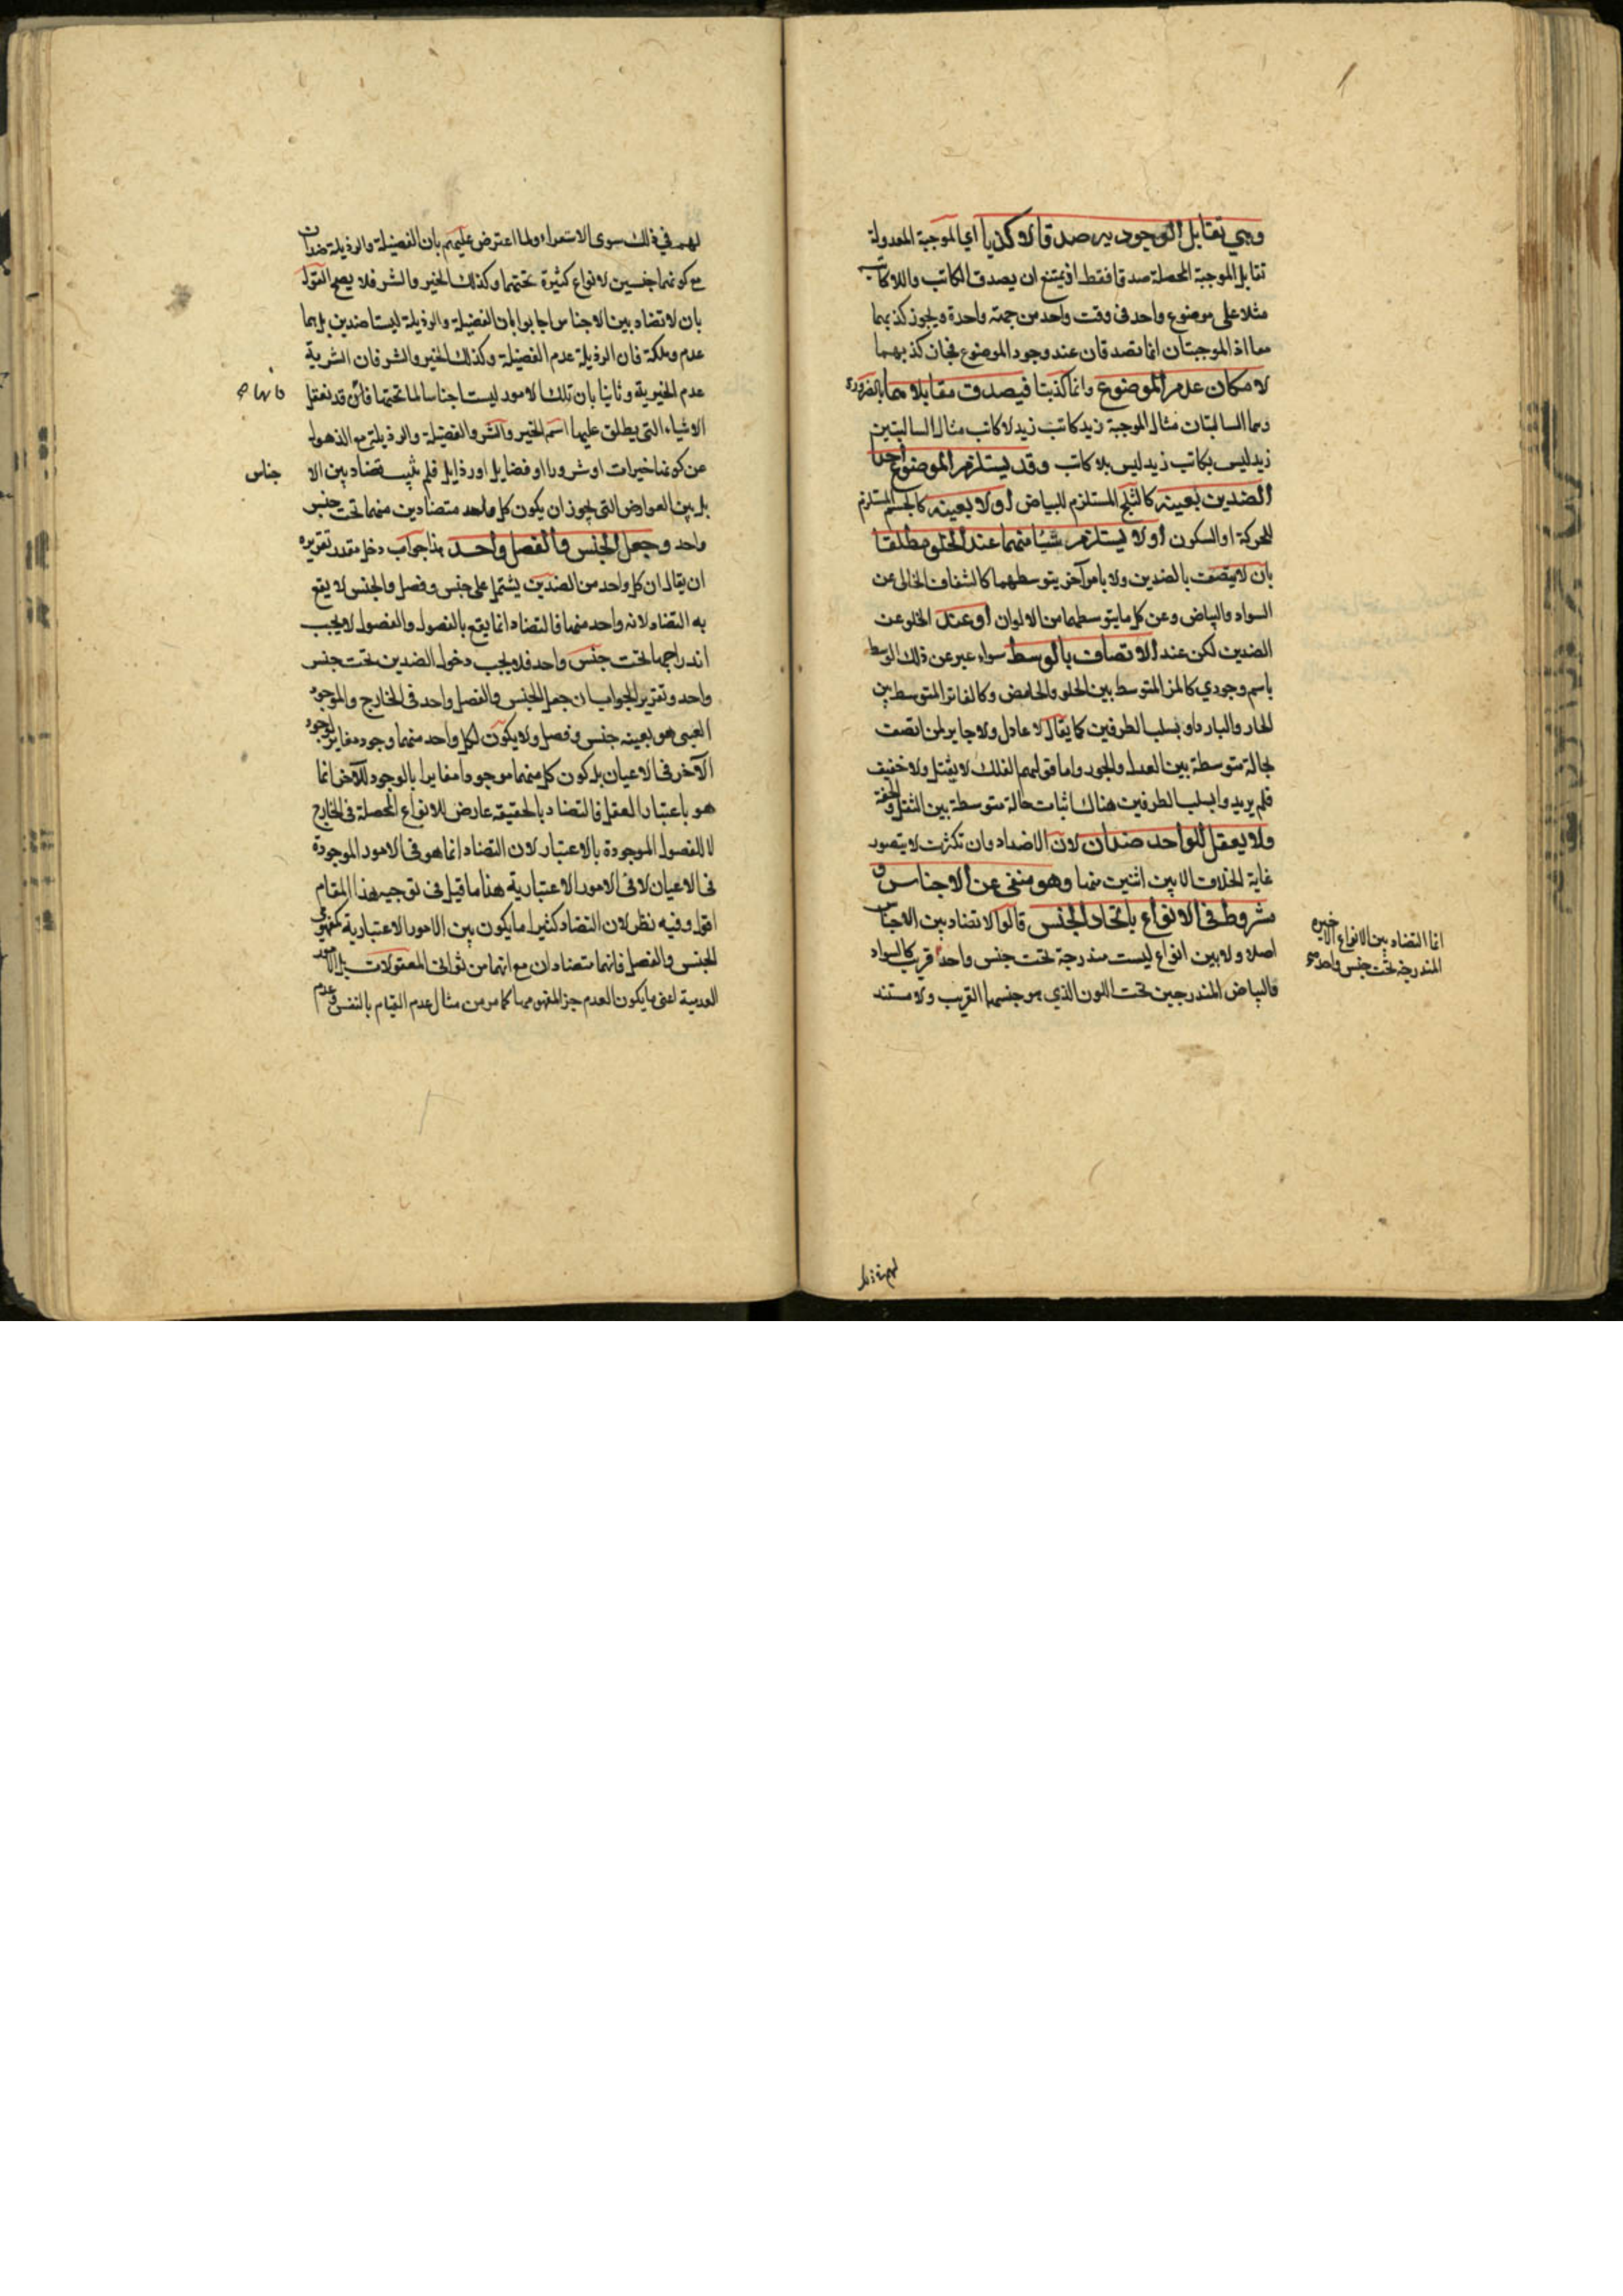 وهي تقابل الوجودية صدقا لا كذبا اي الموجبة المعدولة
تقابل الموجبة المحصلة صدقا فقط اذ يمتنع ان يصدق الكاتب واللاكاتب
مثلا على موضوع واحد في وقت واحد من جهة واحدة ويجوز كذبهما
معا اذ الموجبتان انما تصدقان عند وجود الموضوع فجاز كذبهما
لامكان عدم الموضوع واذا كذبتا فيصدق مقابلاهما بالضرورة
وهما السالبتان مثال الموجبة زيد كاتب زيد لا كاتب مثال السالبتين
زيد ليس بكاتب زيد ليس بلا كاتب وقد يستلزم الموضوع احد
الضدين بعينه كالثلج المستلزم للبياض اولا بعينه كالجسم المستلزم
للحركة او السكون اولا يستلزم شيئا منهما عند الخلو مطلقا
بان لا يتصف بالضدين ولا بامر آخر يتوسطهما كالشفاف الخالي عن
السواد والبياض وعن كل ما يتوسطهما من الالوان او عند الخلو عن
الضدين لكن عند الاتصاف بالوسط سواء عبر عن ذلك الوسط
باسم وجودي كالمز المتوسط بين الحلو والحامض وكالفاتر المتوسط بين
الحار والبارد او بسلب الطرفين كما يقال لا عادل ولا جاير لمن اتصف
بحالة متوسطة بين العدل والجور واما قولهم الفلك لا ثقيل ولا خفيف
فلم يريدوا بسلب الطرفين هناك اثبات حالة متوسطة بين الثقل والخفة
ولا يعقل للواحد ضدان لان الاضداد وان تكثرت لا يتصور
غاية الخلاف الا بين اثنين منها وهو منفي عن الاجناس و
مشروط في الانواع باتحاد الجنس قالوا لا تضاد بين الاجناس
اصلا ولا بين انواع ليست مندرجة تحت جنس واحد قريب كالسواد
والبياض المندرجين تحت اللون الذي هو جنسهما القريب ولا مستند
انما التضاد بين الانواع الاخيره
المندرجة تحت جنس واحد صح
لهم في ذلك سوى الاستقراء ولما اعترض عليهم بان الفضيلة والرذيلة ضدان
مع كونهما جنسين لانواع كثيرة تحتهما وكذلك الخير والشر فلا يصح القول
بان لا تضاد بين الاجناس اجابوا بان الفضيلة والرذيلة ليستا ضدين بل هما
عدم وملكة فان الرذيلة عدم الفضيلة وكذلك الخير والشر فان الشرية
عدم الخيرية وثانيا بان تلك الامور ليست اجناسا لما تحتها فانا قد نعقل
الاشياء التي يطلق عليها اسم الخير والشر والفضيلة والرذيلة مع الذهول
عن كونها خيرات او شرورا او فضايل او رذايل فلم يثبت تضاد بين الا
جناس
بل بين العوارض التي يجوز ان يكون كل واحد متضادين منهما تحت جنس
واحد وجعل الجنس والفصل واحد هذا جواب دخل مقدر تقريره
ان يقال ان كل واحد من الضدين يشتمل على جنس وفصل والجنس لا يقع
به التضاد لانه واحد منهما فالتضاد انما يقع بالفصول والفصول لا يجب
اندراجهما تحت جنس واحد فلا يجب دخول الضدين تحت جنس
واحد وتقرير الجواب ان جعل الجنس والفصل واحد في الخارج والموجود
العيني هو بعينه جنس وفصل ولا يكون لكل واحد منهما وجود مغاير لوجود
الآخر في الاعيان بل كون كل منهما موجودا مغايرا بالوجود للآخر انما
هو باعتبار العقل فالتضاد بالحقيقة عارض للانواع المحصلة في الخارج
لا للفصول الموجودة بالاعتبار لان التضاد انما هو في الامور الموجودة
في الاعيان لا في الامور الاعتبارية هذا ما قيل في توجيه هذا المقام
اقول وفيه نظر لان التضاد كثيرا ما يكون بين الامور الاعتبارية كمفهومي
الجنس والفصل فانهما متضادان مع انهما من ثواني المعقولات بل الامور
العدمية اعني ما يكون العدم جزء المفهومها كما مر من مثال عدم القيام بالنفس وعدم